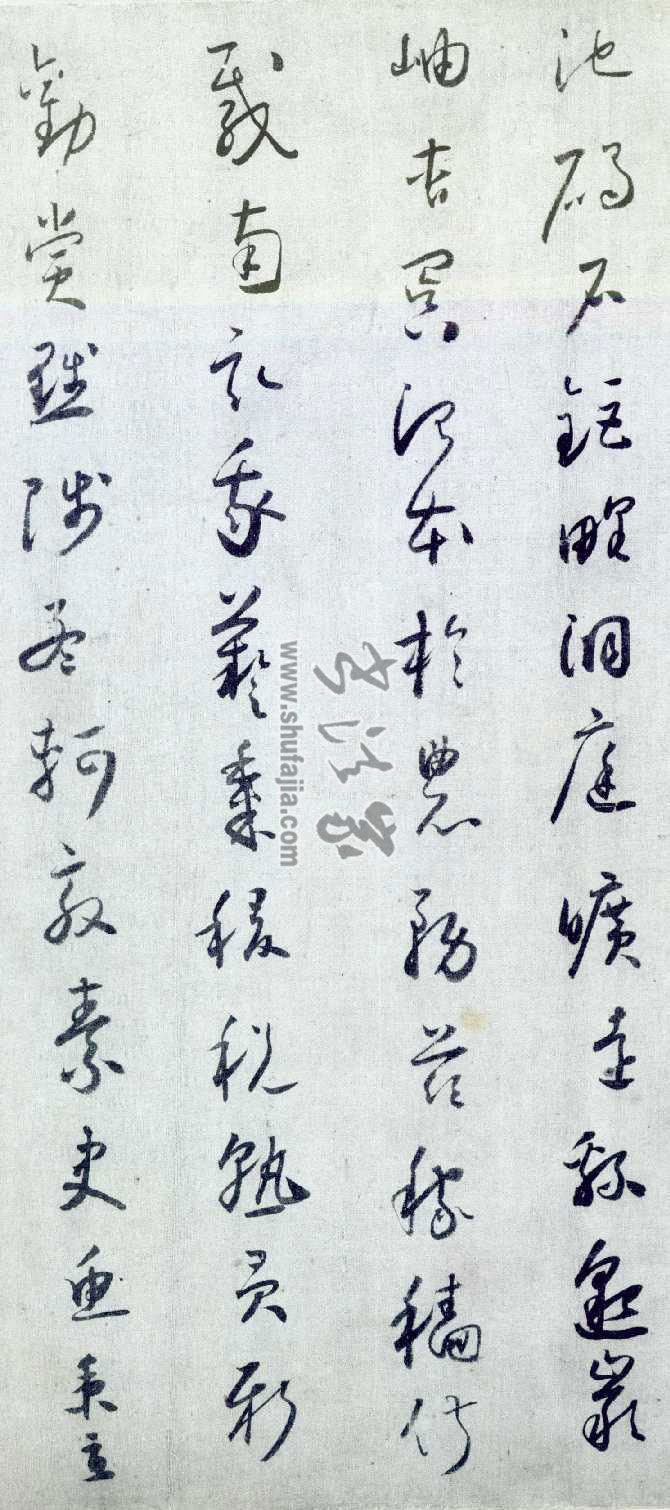 池碣石鉅野洞庭曠遠緜邈巖
岫杳冥治本於農務茲稼穡俶
載南畝我藝黍稷稅熟貢新
勸賞黜陟孟軻敦素史魚秉直
书法家
www.shufajia.com